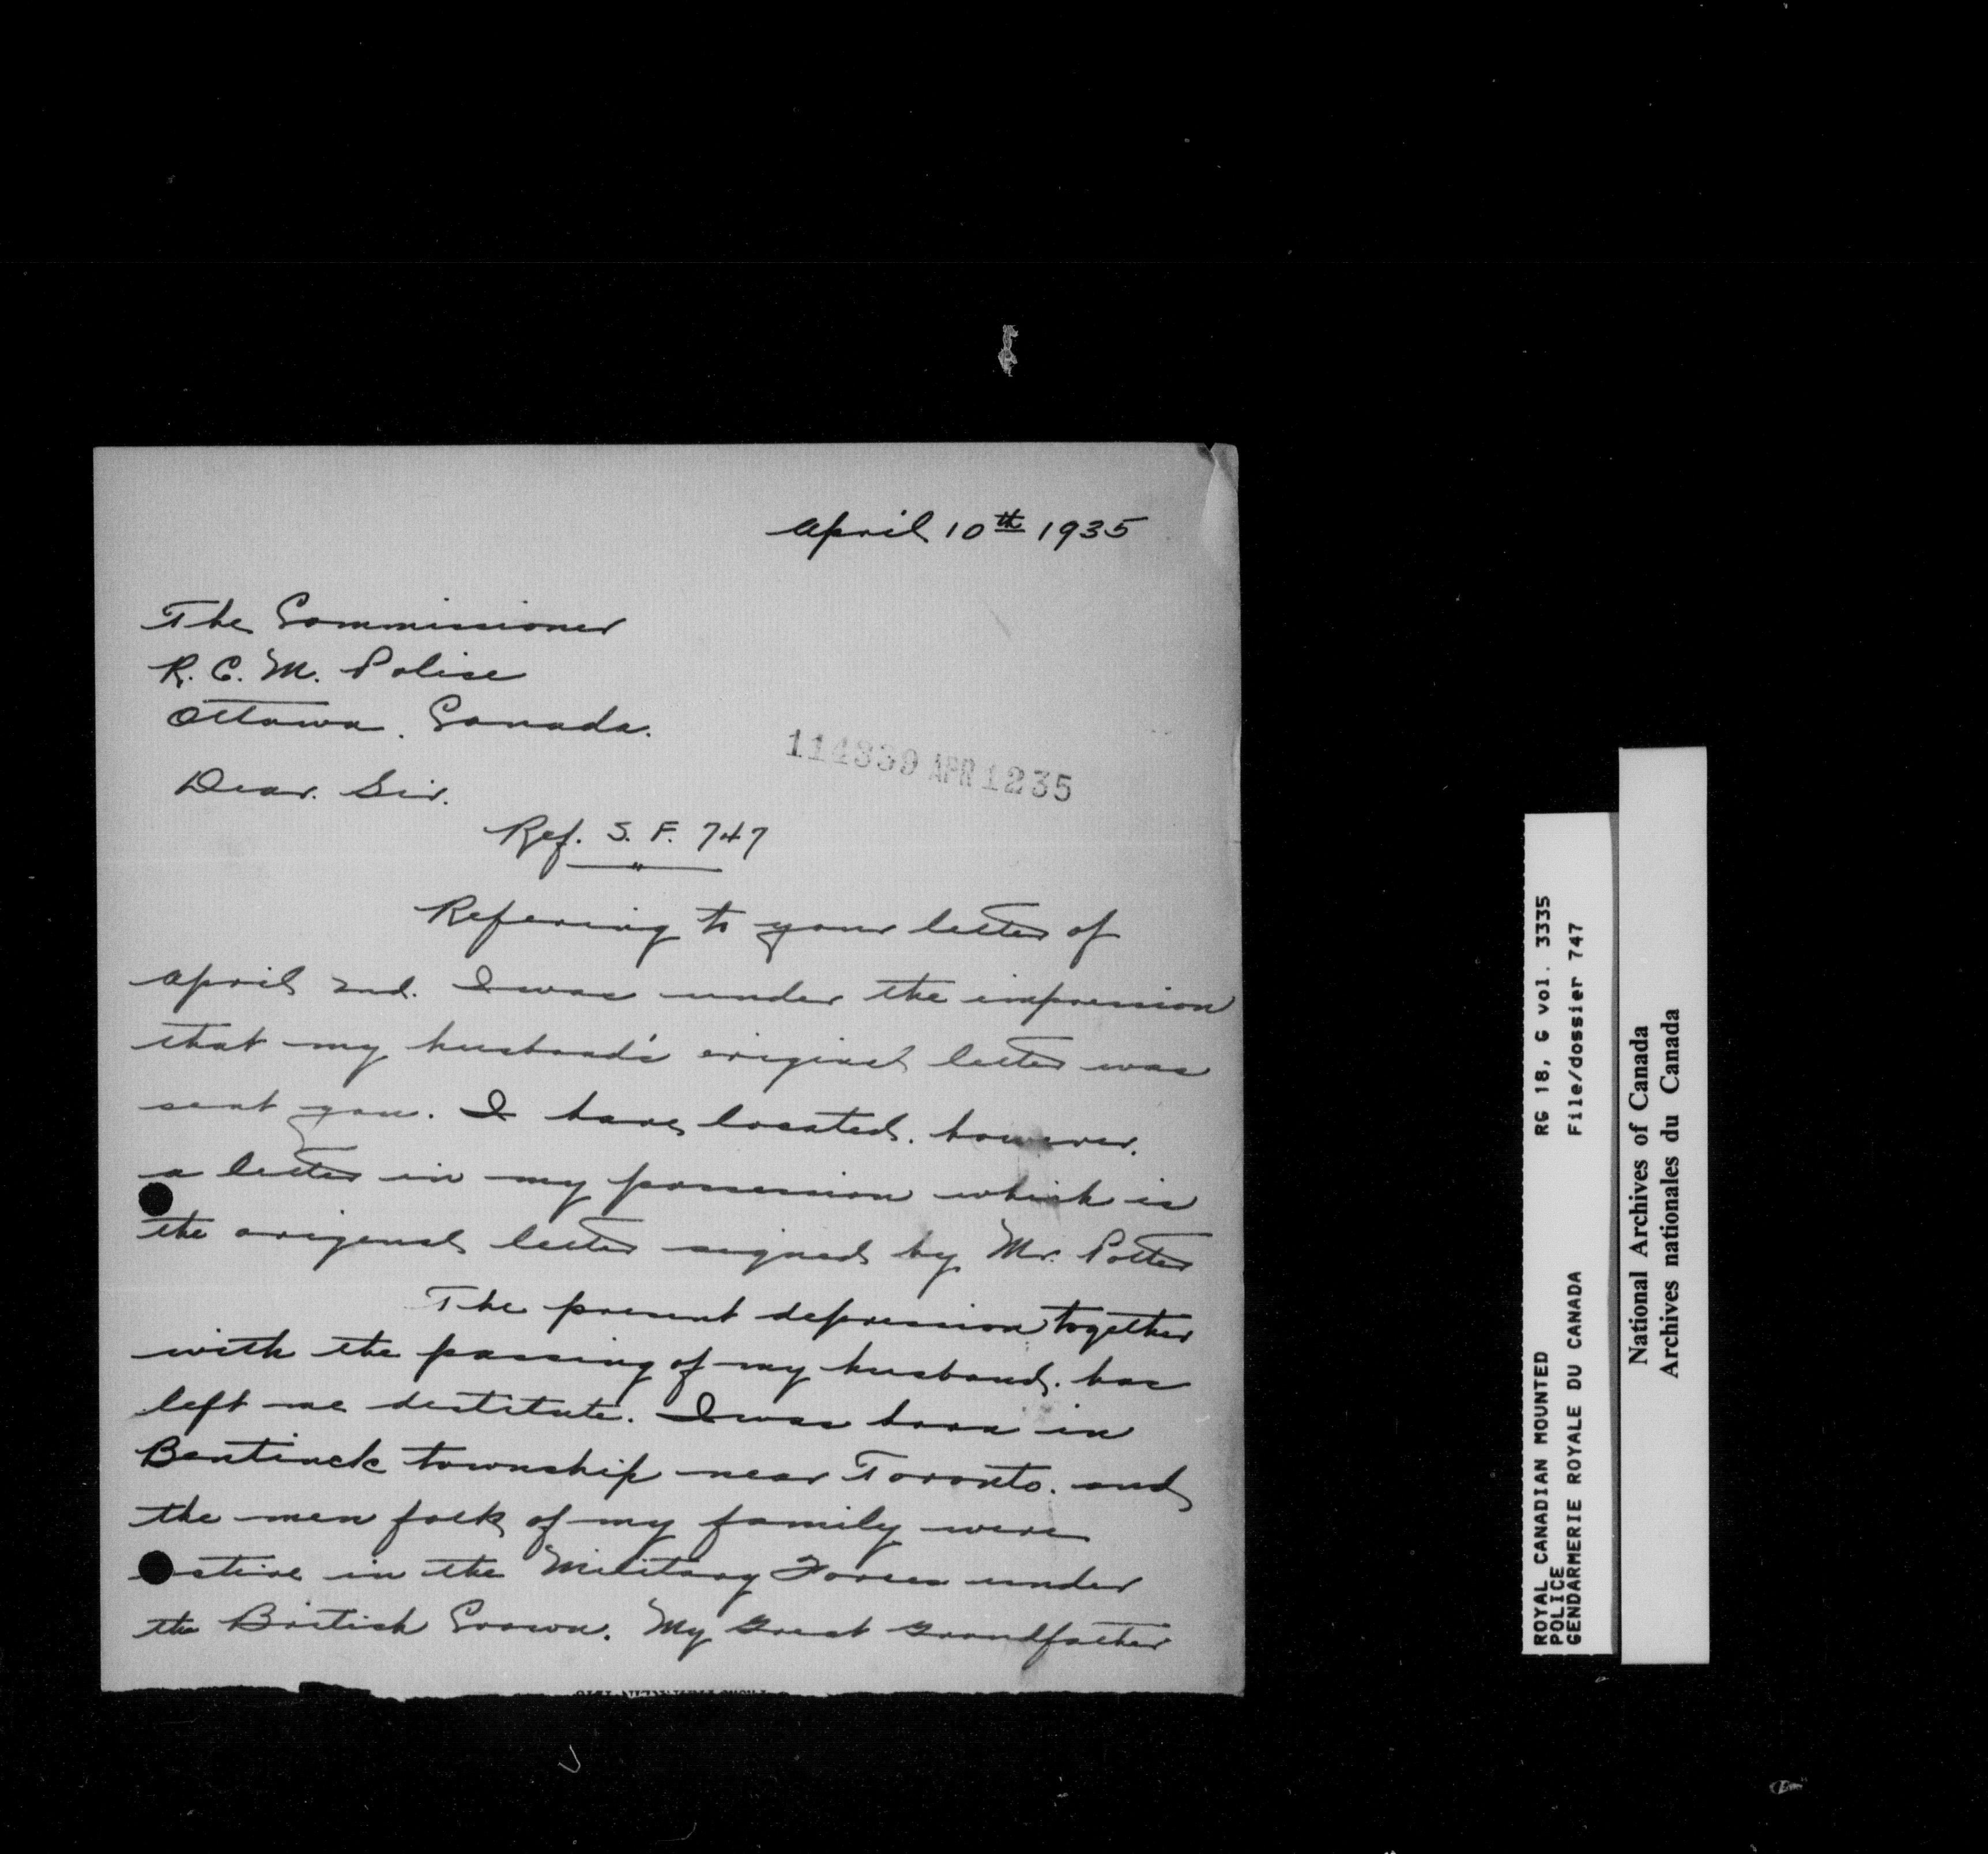 April 10th 1935
The Commissioner
R. C. M. Police
Ottawa. Canada.
114339 APR 12 35
Dear. Sir.
Ref. S. F. 747
Refering to your letter of
April 2nd. I was under the impression
that my husband's original letter was
sent you. I have located. however.
a letter in my possession which is
the original letter signed by Mr. Potter
The present depression together
with the passing of my husband. has
left me destitute. I was born in
Bentinck township near Toronto. and
the men folk of my family were
active in the Military Forces under
the British Crown. My Great Grandfather
ROYAL CANADIAN MOUNTED RG 18, G vol. 3335
POLICE
GENDARMERIE ROYALE DU CANADA File/dossier 747
National Archives of Canada
Archives nationales du Canada